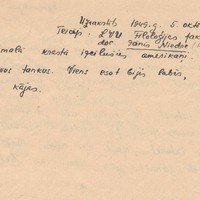 Uzrakstīts 1949. g. 5. okt
Teicējs: LVU Filoloģijas fak
doc. Jānis Niedre
malā krastā izcēlušies amerikāņi
tankus. Viens esot bijis balts,
kājas.